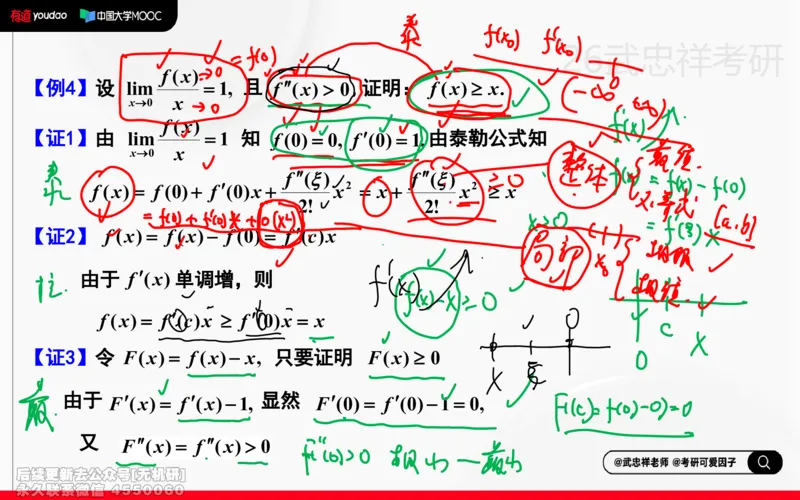 有道 youdao 中国大学MOOC
26武忠祥考研
【例4】设 lim_{x→0} f(x)/x = 1, 且 f″(x) > 0, 证明: f(x) ≥ x.
【证1】由 lim_{x→0} f(x)/x = 1 知 f(0) = 0, f′(0) = 1, 由泰勒公式知
f(x) = f(0) + f′(0)x + f″(ξ)/2! x² = x + f″(ξ)/2! x² ≥ x
= f(0) + f′(0)x + o(x²)
【证2】 f(x) = f(x) − f(0) = f′(c)x
由于 f′(x) 单调增, 则
f(x) = f′(c)x ≥ f′(0)x = x
【证3】令 F(x) = f(x) − x, 只要证明 F(x) ≥ 0
由于 F′(x) = f′(x) − 1, 显然 F′(0) = f′(0) − 1 = 0,
又 F″(x) = f″(x) > 0
= f(0)
→0
→0
泰
f(x₀) f′(x₀)
整体
最值
不等式
[a,b]
= f(x) − f(0)
≥ 0
x>0
局部
极限
极值
f′(x)
f(x) − x ≥ 0
x ξ 0
0 c x
F″(0)>0 极小 — 最小
@武忠祥老师 @考研可爱因子
后续更新去公众号[无机研]
永久联系微信 4550060